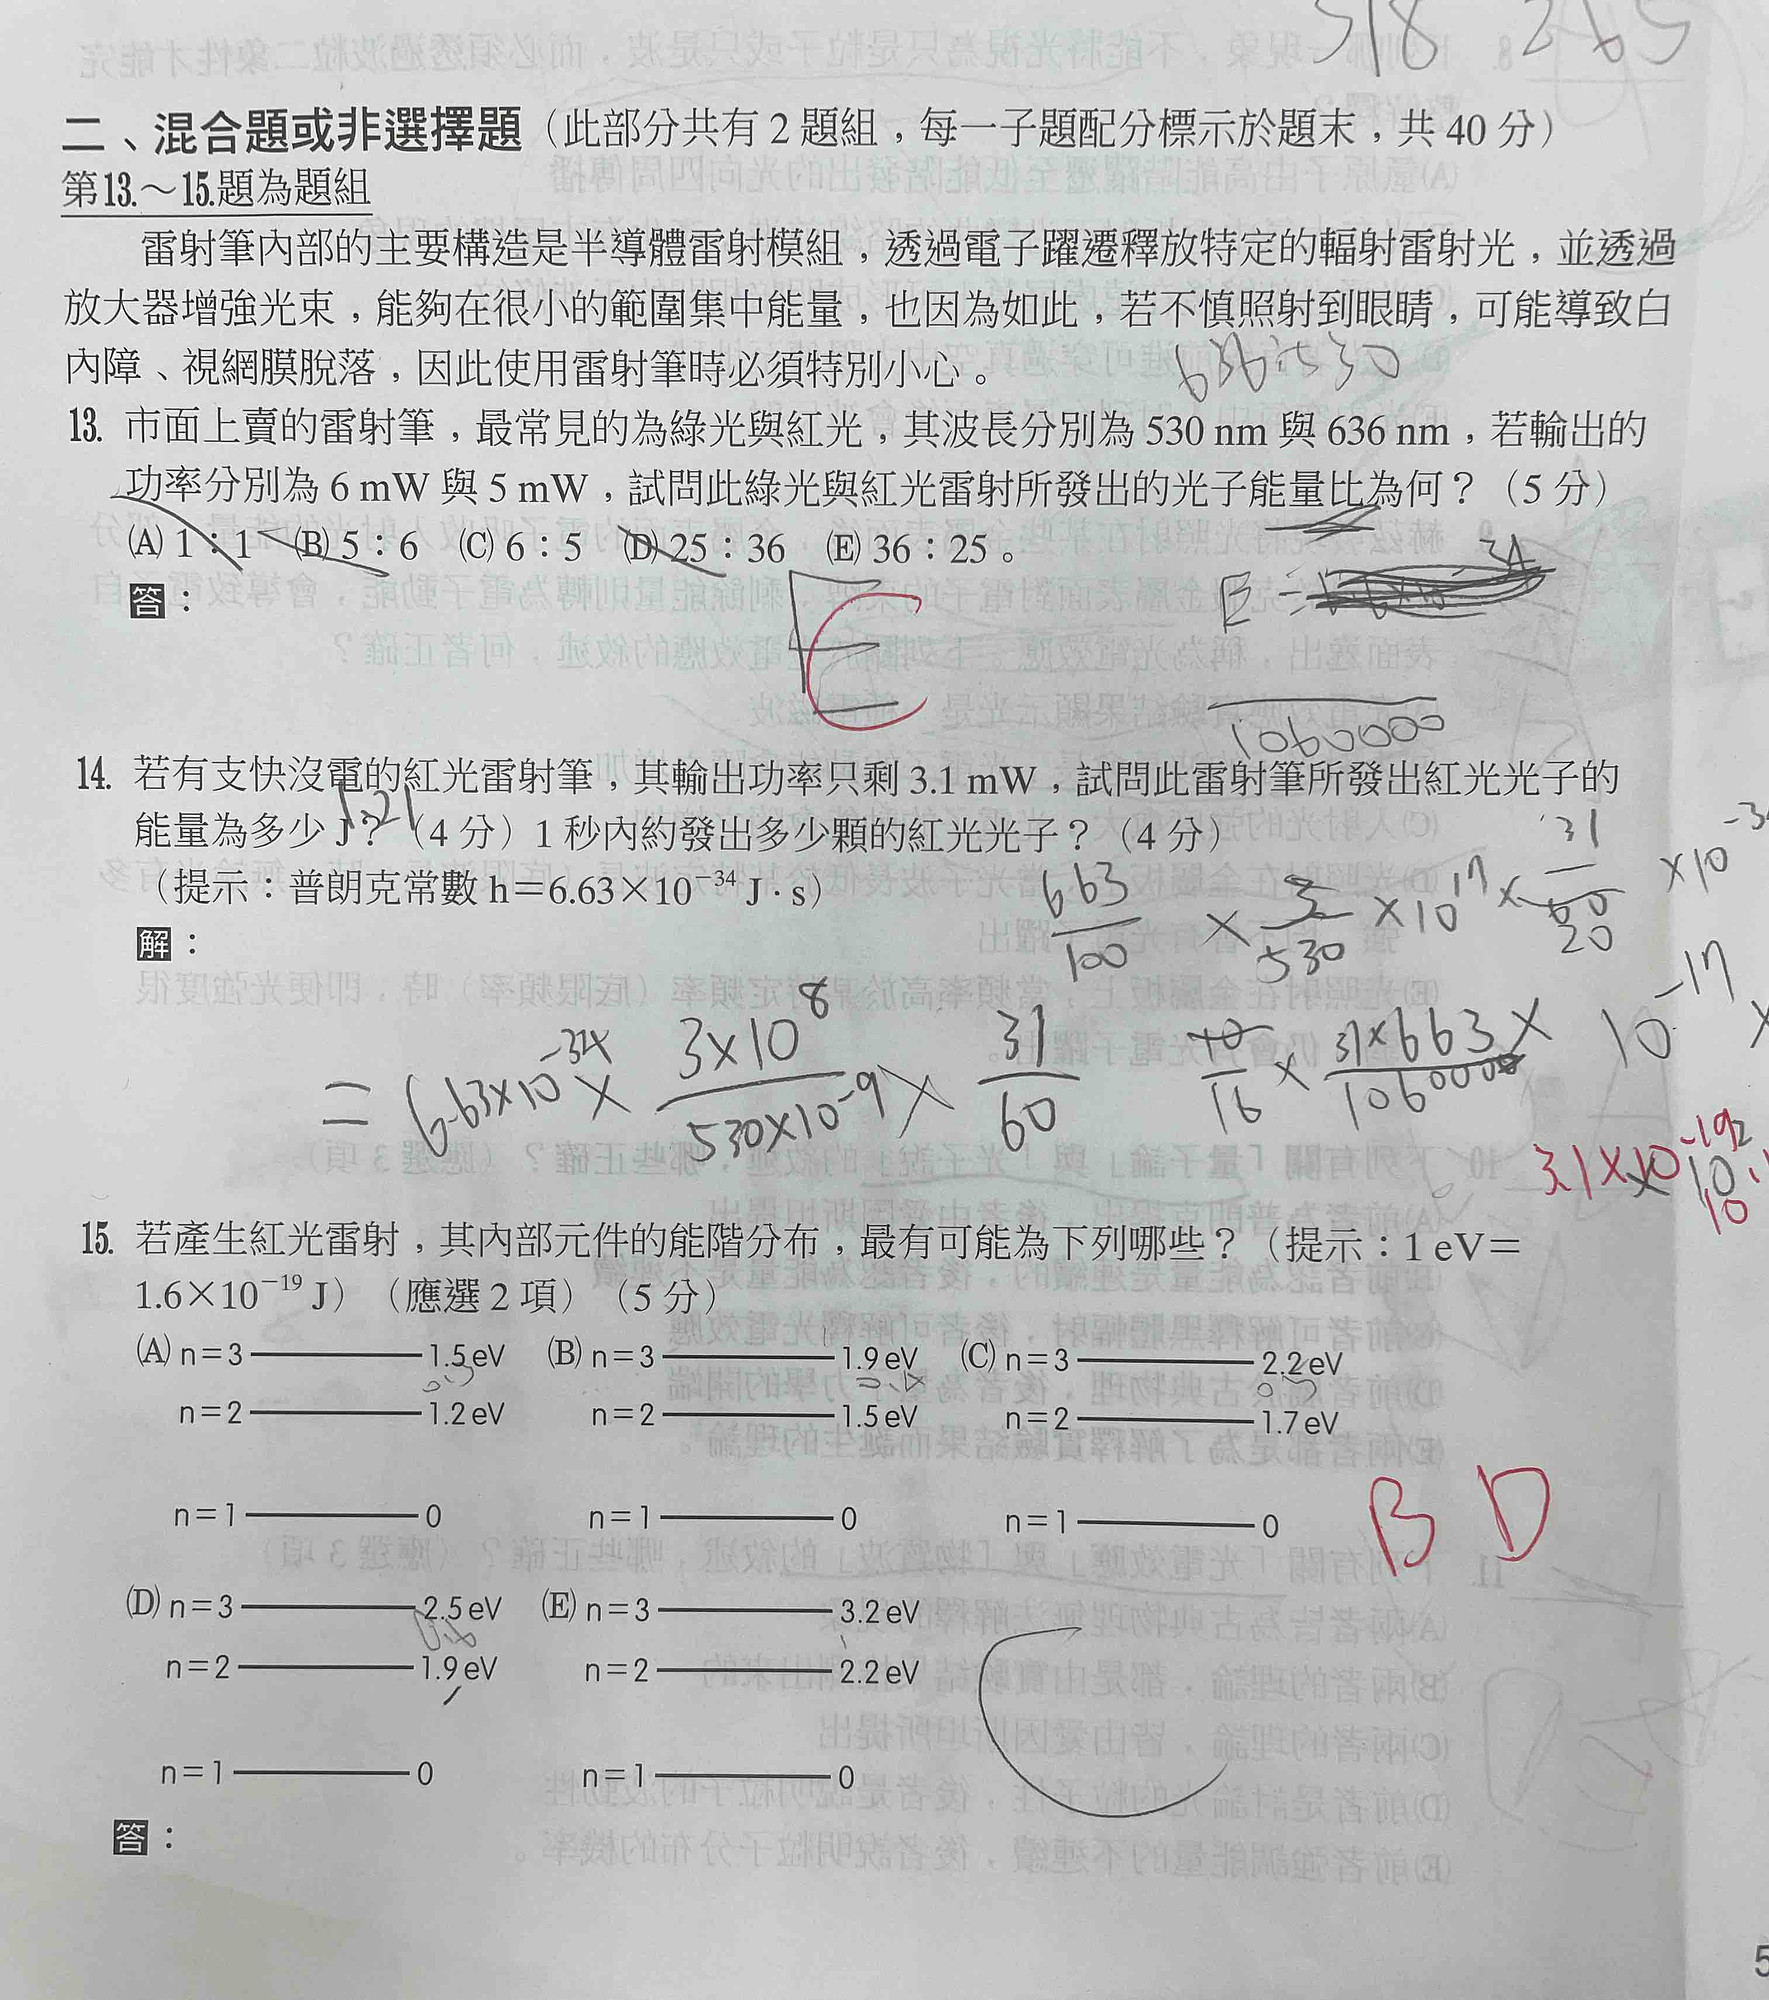 318 265
二、混合題或非選擇題（此部分共有 2 題組，每一子題配分標示於題末，共 40 分）
第13.～15.題為題組
雷射筆內部的主要構造是半導體雷射模組，透過電子躍遷釋放特定的輻射雷射光，並透過
放大器增強光束，能夠在很小的範圍集中能量，也因為如此，若不慎照射到眼睛，可能導致白
內障、視網膜脫落，因此使用雷射筆時必須特別小心。
636:530
13. 市面上賣的雷射筆，最常見的為綠光與紅光，其波長分別為 530 nm 與 636 nm，若輸出的
功率分別為 6 mW 與 5 mW，試問此綠光與紅光雷射所發出的光子能量比為何？（5 分）
(A) 1：1 (B) 5：6 (C) 6：5 (D) 25：36 (E) 36：25。
答：
E
C
E =
1060000
14. 若有支快沒電的紅光雷射筆，其輸出功率只剩 3.1 mW，試問此雷射筆所發出紅光光子的
能量為多少 J？（4 分）1 秒內約發出多少顆的紅光光子？（4 分）
（提示：普朗克常數 h＝6.63×10⁻³⁴ J · s）
1.21
解：
663/100 × 3/530 × 10¹⁷ × 31/60 × 10⁻³⁴
20
= 6.63×10⁻³⁴ × 3×10⁸/530×10⁻⁹ × 31/60
10/16 × 31×663/1060000 × 10⁻¹⁷ ×
3.1×10⁻¹⁹
15. 若產生紅光雷射，其內部元件的能階分布，最有可能為下列哪些？（提示：1 eV＝
1.6×10⁻¹⁹ J）（應選 2 項）（5 分）
(A) n＝3 1.5 eV (B) n＝3 1.9 eV (C) n＝3 2.2 eV
0.3 0.4 0.5
n＝2 1.2 eV n＝2 1.5 eV n＝2 1.7 eV
n＝1 0 n＝1 0 n＝1 0
B D
(D) n＝3 2.5 eV (E) n＝3 3.2 eV
0.6 1
n＝2 1.9 eV n＝2 2.2 eV
n＝1 0 n＝1 0
答：
5